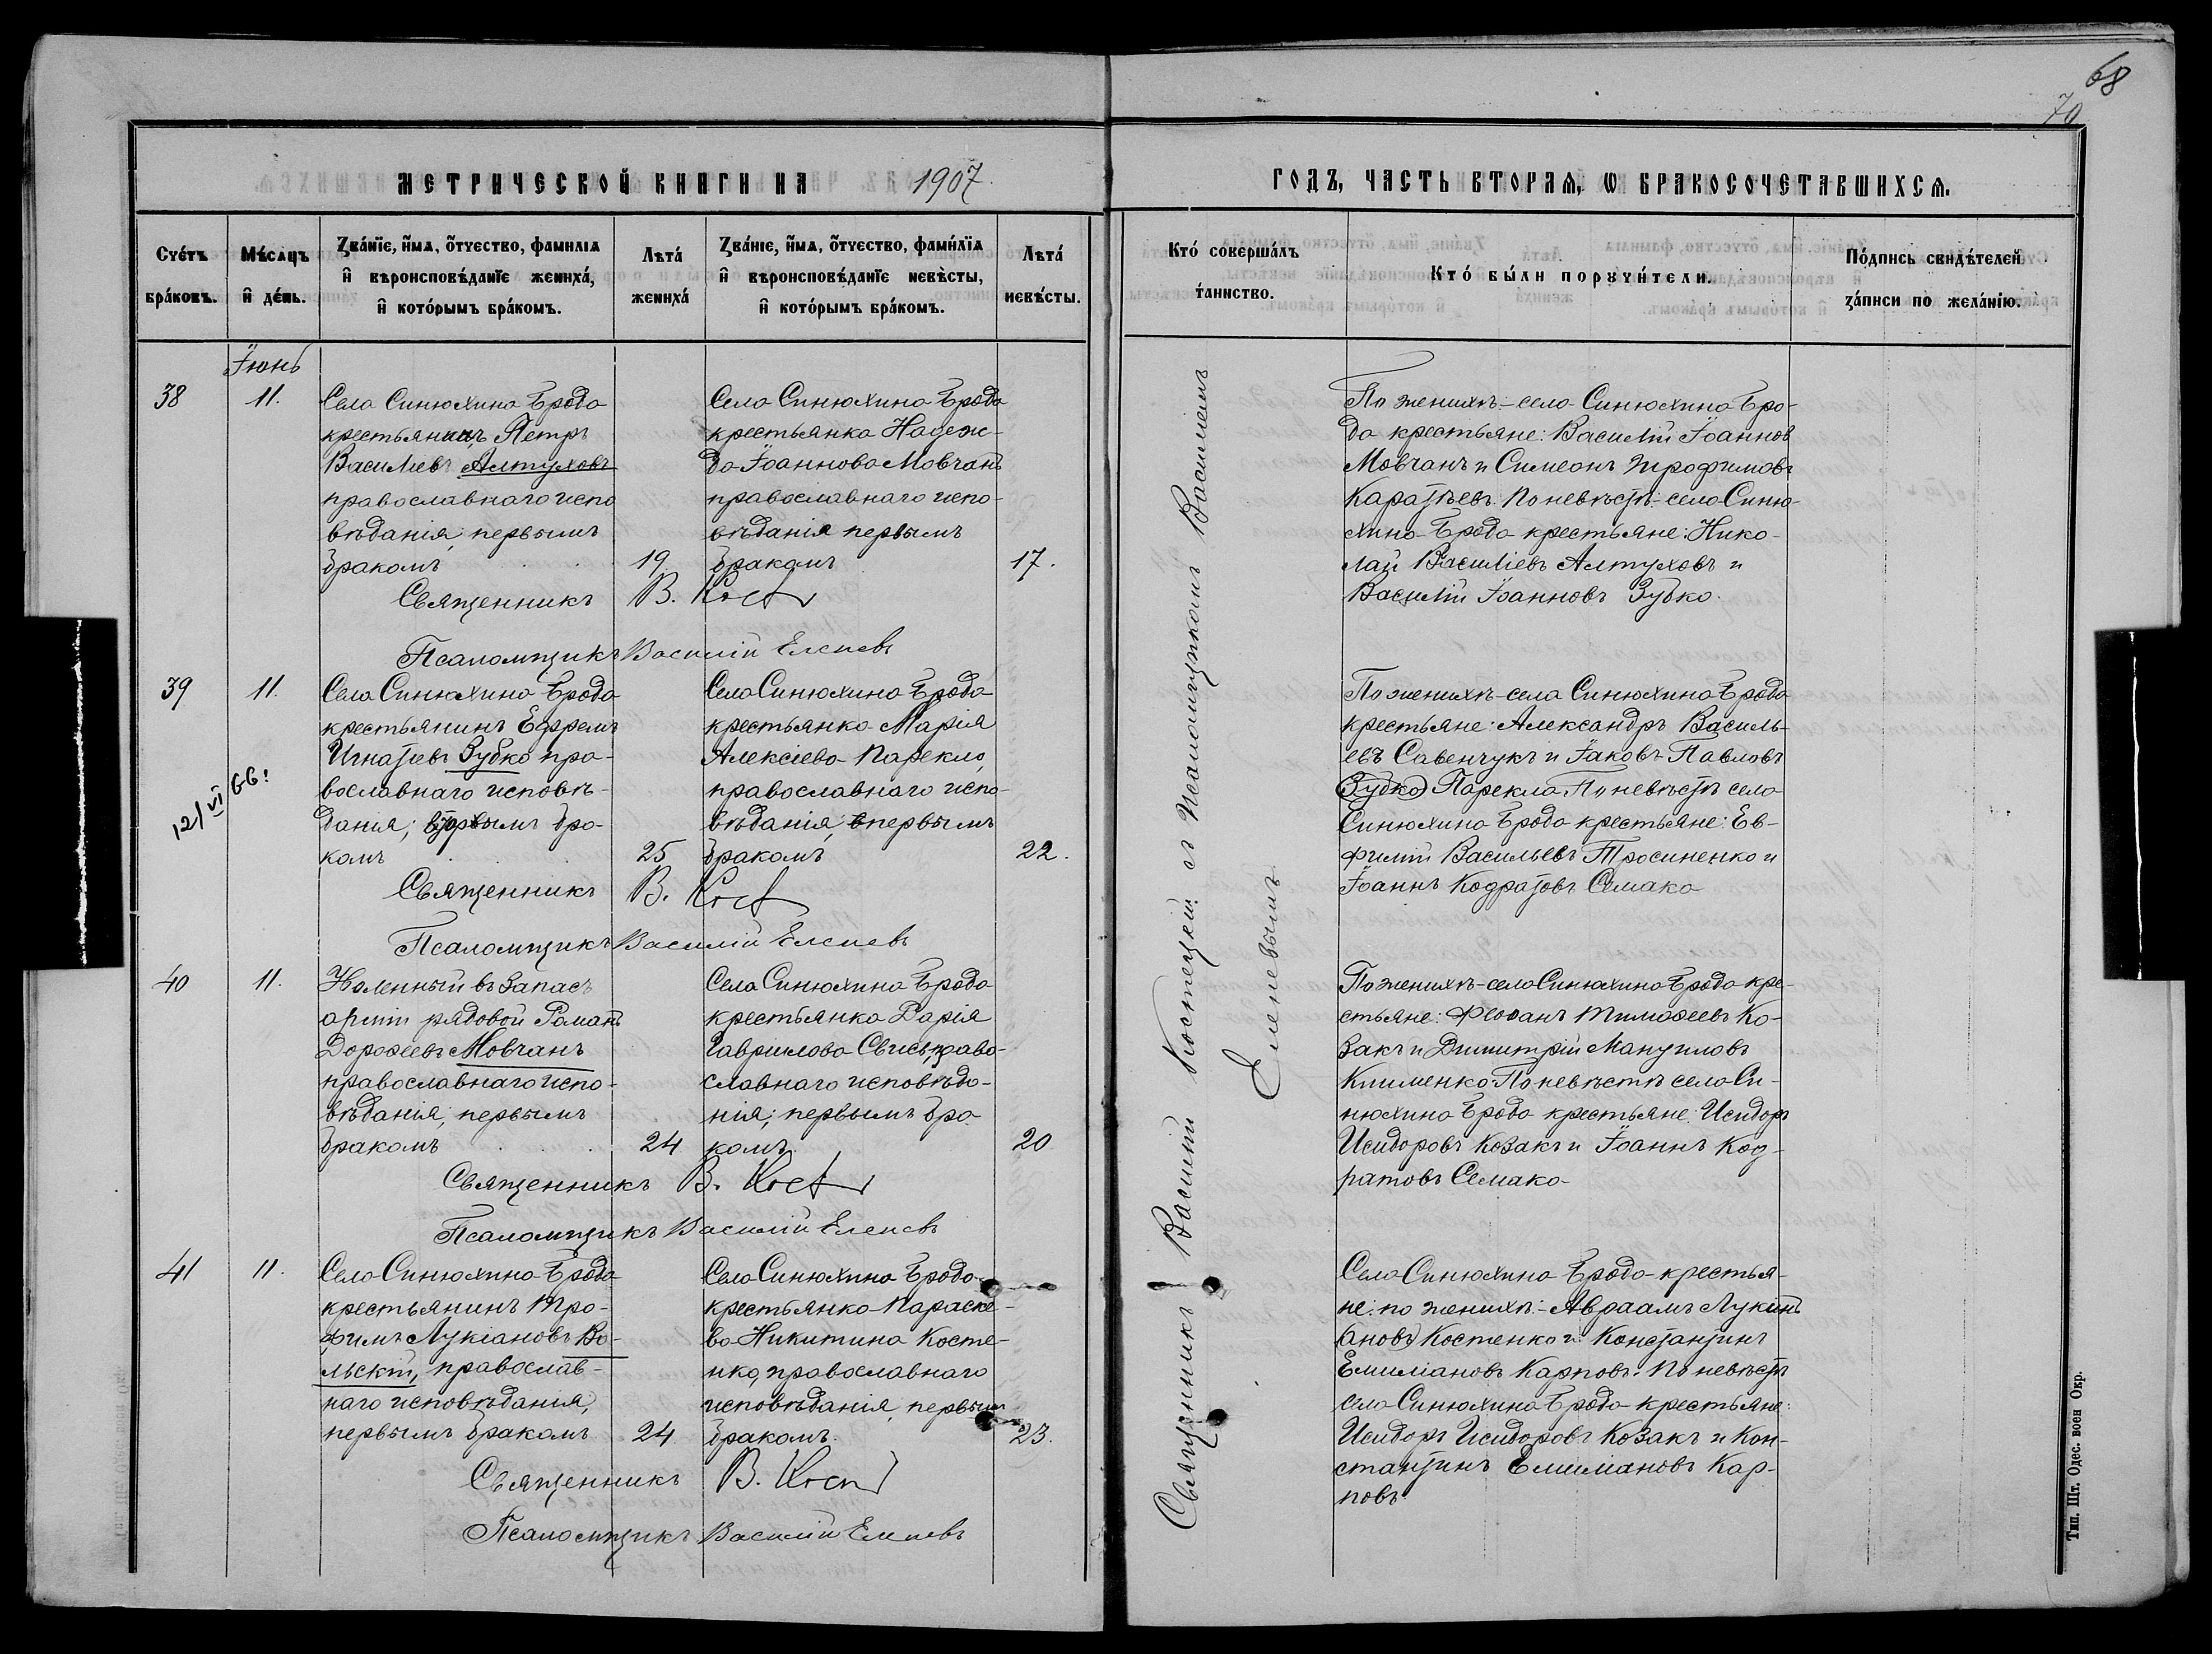 68
70
МЕТРИЧЕСКОЙ КНИГИ НА 1907
ГОДЪ, ЧАСТЬ ВТОРАѦ, Ѡ БРАКОСОЧЕТАВШИХСѦ.
Счетъ браковъ.
Мѣсяцъ и день.
Званіе, имя, отчество, фамилія и вѣроисповѣданіе жениха, и которымъ бракомъ.
Лѣта жениха
Званіе, имя, отчество, фамилія и вѣроисповѣданіе невѣсты, и которымъ бракомъ.
Лѣта невѣсты.
Кто совершалъ таинство.
Кто были поручители.
Подпись свидѣтелей записи по желанію.
Іюнь
38
11.
Села Синюхина Брода
крестьянинъ Петръ
Василіевъ Алтуховъ
православнаго испо
вѣданія, первымъ
бракомъ
19
Села Синюхина Брода
крестьянка Надеж-
да Іоаннова Мовчанъ
православнаго испо-
вѣданія первымъ
бракомъ
17.
Священникъ В.
Псаломщикъ Василій Еленевъ
По женихѣ – села Синюхина Бро-
да крестьяне: Василій Іоанновъ
Мовчанъ и Симеонъ Трофимовъ
Каратѣевъ. По невѣстѣ: села Синю-
хина Брода крестьяне: Нико-
лай Василіевъ Алтуховъ и
Василій Іоанновъ Зубко.
39
11.
12/VI 66:
Села Синюхина Брода
крестьянинъ Ефремъ
Игнатіевъ Зубко пра-
вославнаго исповѣ-
данія; вторымъ бра-
комъ
25
Села Синюхина Брода
крестьянка Марія
Алексіева Парекла,
православнаго испо-
вѣданія, первымъ
бракомъ
22.
Священникъ В.
Псаломщикъ Василій Еленевъ
По женихѣ – села Синюхина Брода
крестьяне: Александръ Василь-
евъ Савенчукъ и Іаковъ Павловъ
(Зубко) Парекла. По невѣстѣ села
Синюхина Брода крестьяне: Ев-
фимій Васильевъ Тросиненко и
Іоаннъ Кодратовъ Семака
40
11.
въ запасъ
арміи рядовой Романъ
Дорофеевъ Мовчанъ
православнаго испо-
вѣданія, первымъ
бракомъ
24
Села Синюхина Брода
крестьянка Дарія
Гаврилова Свись, право-
славнаго исповѣда-
нія; первымъ бра-
комъ.
20
Священникъ В.
Псаломщикъ Василій Еленевъ
По женихѣ – села Синюхина Брода кре-
стьяне: Феофанъ Тимофеевъ Ко-
закъ и Димитрій Мануиловъ
Клименко. По невѣстѣ села Си-
нюхина Брода крестьяне: Исидоръ
Исидоровъ Козакъ и Іоаннъ Код-
ратовъ Семака
41
11.
Села Синюхина Брода
крестьянинъ Тро-
фимъ Лукіановъ Во-
льскій, православ-
наго исповѣданія,
первымъ бракомъ
24
Села Синюхина Брода
крестьянка Параске-
ва Никитина Косте-
нко, православнаго
исповѣданія, первымъ
бракомъ.
23.
Священникъ В.
Псаломщикъ Василій Еленевъ
Села Синюхина Брода крестья-
не: по женихѣ: – Авраамъ
(ановъ) Костенко и Константинъ
Емиліановъ Карповъ. По невѣстѣ
села Синюхина Брода крестьяне:
Исидоръ Исидоровъ Козакъ и Кон-
стантинъ Емиліановъ Кар-
повъ.
Священникъ Василій Костецкій съ Псаломщикомъ Василіемъ
Еленевымъ
Тип. Шт. Одес. воен Окр.